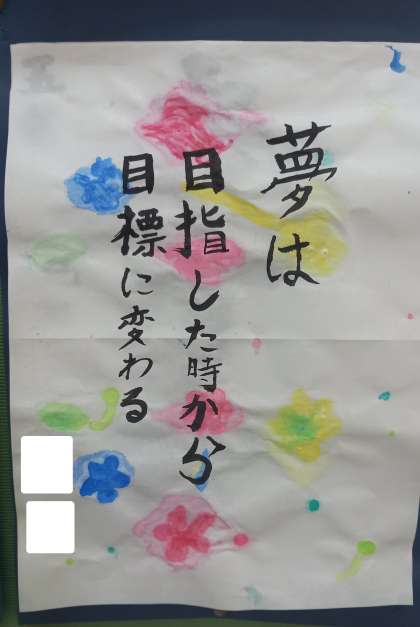 夢は
目指した時から
目標に変わる